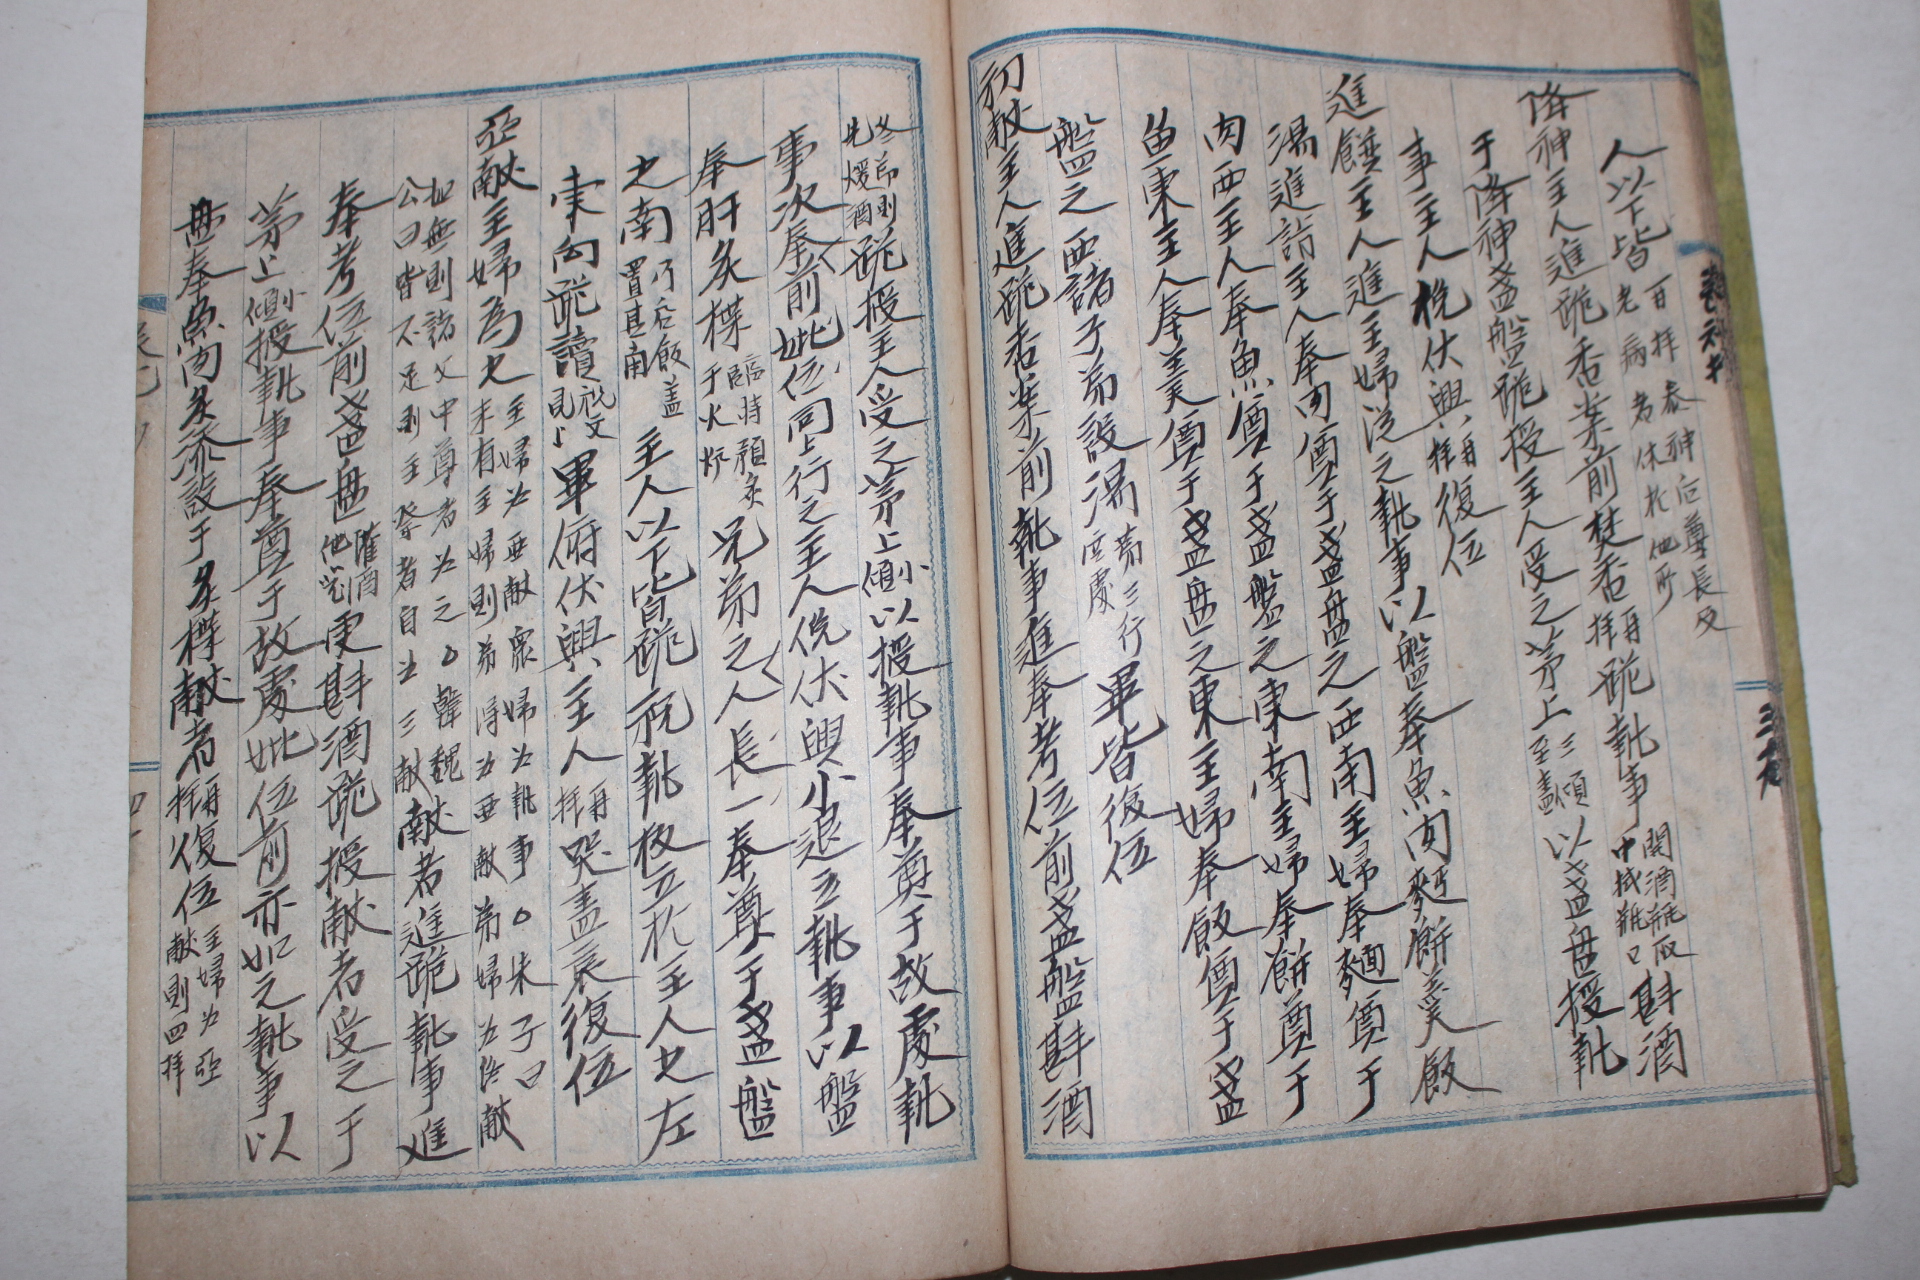 人以下皆再拜 參神后尊長及老病者休於他所
降神主人進跪香案前焚香再拜跪執事開酒瓶取巾拭瓶口斟酒
于降神盞盤跪授主人受之茅上三傾至盡以盞盤授執
事主人俛伏興再拜復位
進饌主人進主婦從之執事以盤奉魚肉麵餠羹飯
湯進詣主人奉肉奠于盞盤之西南主婦奉麵奠于
肉西主人奉魚奠于盞盤之東南主婦奉餠奠于
魚東主人奉羹奠于盞盤之東主婦奉飯奠于盞
盤之西諸子弟設湯第三行空處畢皆復位
初獻主人進跪香案前執事進奉考位前盞盤斟酒
冬節則先煖酒跪授主人受之茅上小傾以授執事奉奠于故處執
事次奉前妣位同上行之主人俛伏興小退立執事以盤
奉肝炙楪臨時預炙于火爐兄弟之人長一奉奠于盞盤
之南乃啓飯蓋置其南主人以下皆跪祝執板立於主人之左
東向跪讀祝文見上畢俯伏興主人再拜哭盡哀復位
亞獻主婦爲之主婦爲亞獻衆婦爲執事○朱子曰未有主婦則弟得爲亞獻弟婦爲終獻
此無則諸父中尊者爲之○韓魏公曰皆不足則主祭者自爲三獻獻者進跪執事進
奉考位前盞盤灌酒他器更斟酒跪授獻者受之于
茅上小傾授執事奉奠于故處妣位前亦如之執事以
無奉魚肉炙添設于炙楪獻者再拜復位主婦爲亞獻則四拜